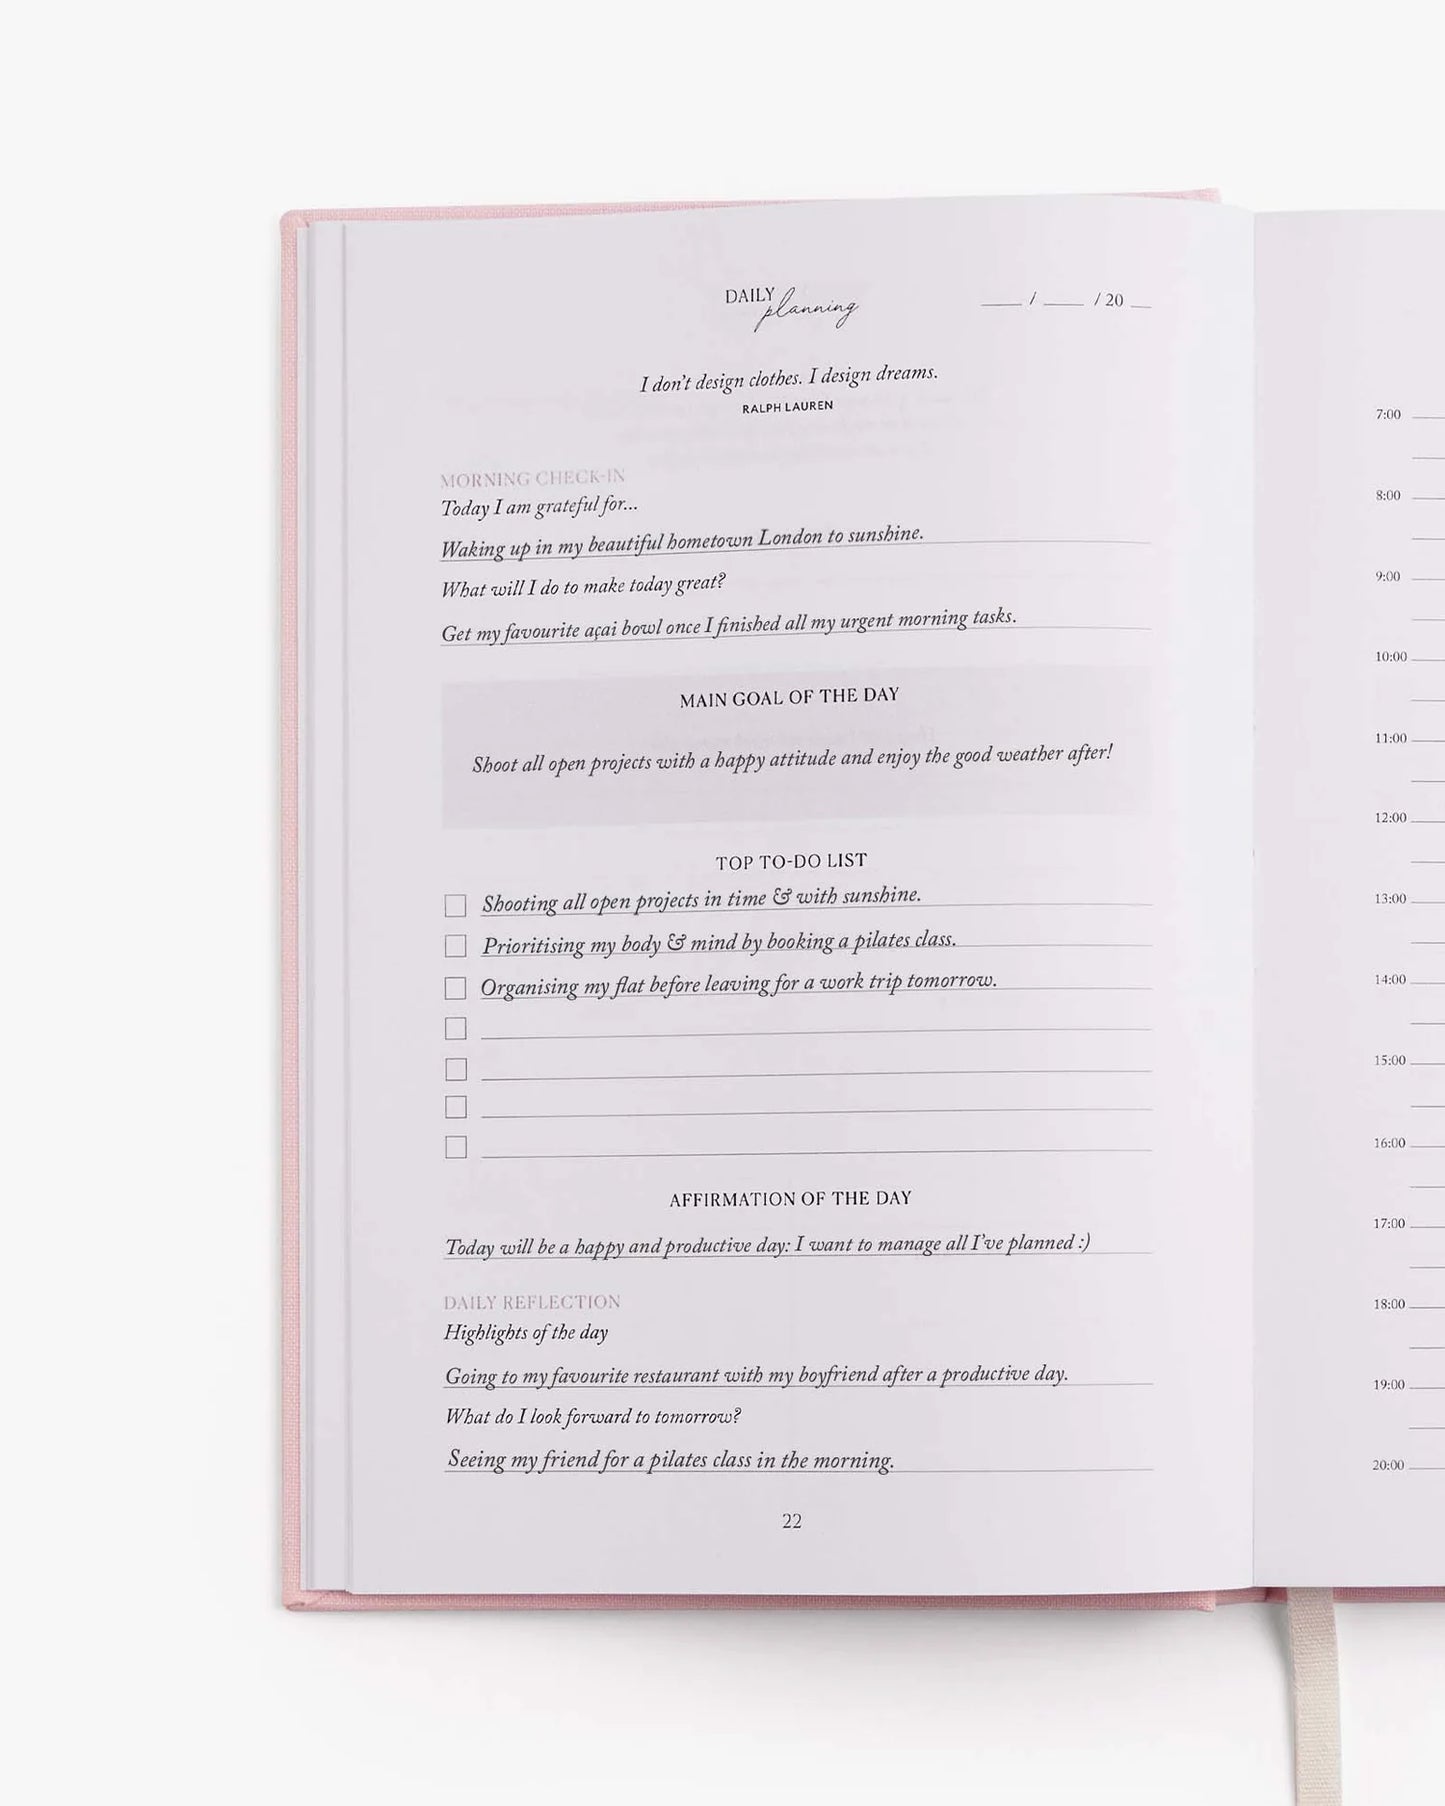 DAILY planning
___ / ___ / 20 __
I don't design clothes. I design dreams.
RALPH LAUREN
MORNING CHECK-IN
Today I am grateful for...
Waking up in my beautiful hometown London to sunshine.
What will I do to make today great?
Get my favourite açai bowl once I finished all my urgent morning tasks.
MAIN GOAL OF THE DAY
Shoot all open projects with a happy attitude and enjoy the good weather after!
TOP TO-DO LIST
Shooting all open projects in time & with sunshine.
Prioritising my body & mind by booking a pilates class.
Organising my flat before leaving for a work trip tomorrow.
AFFIRMATION OF THE DAY
Today will be a happy and productive day: I want to manage all I've planned :)
DAILY REFLECTION
Highlights of the day
Going to my favourite restaurant with my boyfriend after a productive day.
What do I look forward to tomorrow?
Seeing my friend for a pilates class in the morning.
22
7:00
8:00
9:00
10:00
11:00
12:00
13:00
14:00
15:00
16:00
17:00
18:00
19:00
20:00